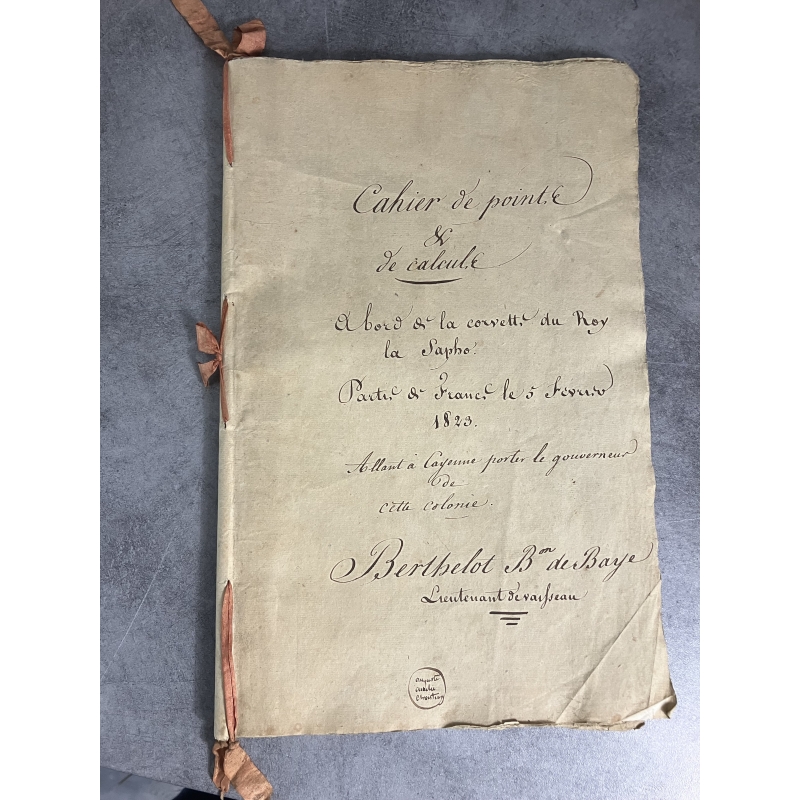 Cahier de point.e
&
de calcul.e
A bord de la corvette du Roy
la Sapho.
Partie de France le 5 Février
1823.
Allant à Cayenne porter le gouverneur
de
cette colonie.
Berthelot B.on de Baye
Lieutenant de vaisseau
auguste